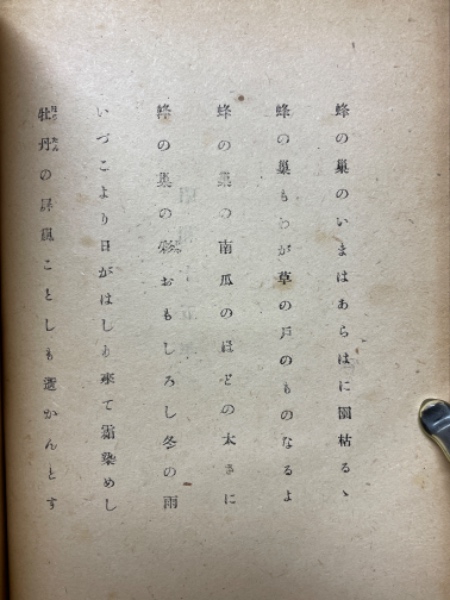 蜂の巣のいまはあらはに園枯るゝ
蜂の巣もわが草の戸のものなるよ
蜂の巣の南瓜のほどの太さに
蜂の巣の彩おもしろし冬の雨
いづこより日がはしも来て霜染めし
牡丹の屏風ことしも かんとす